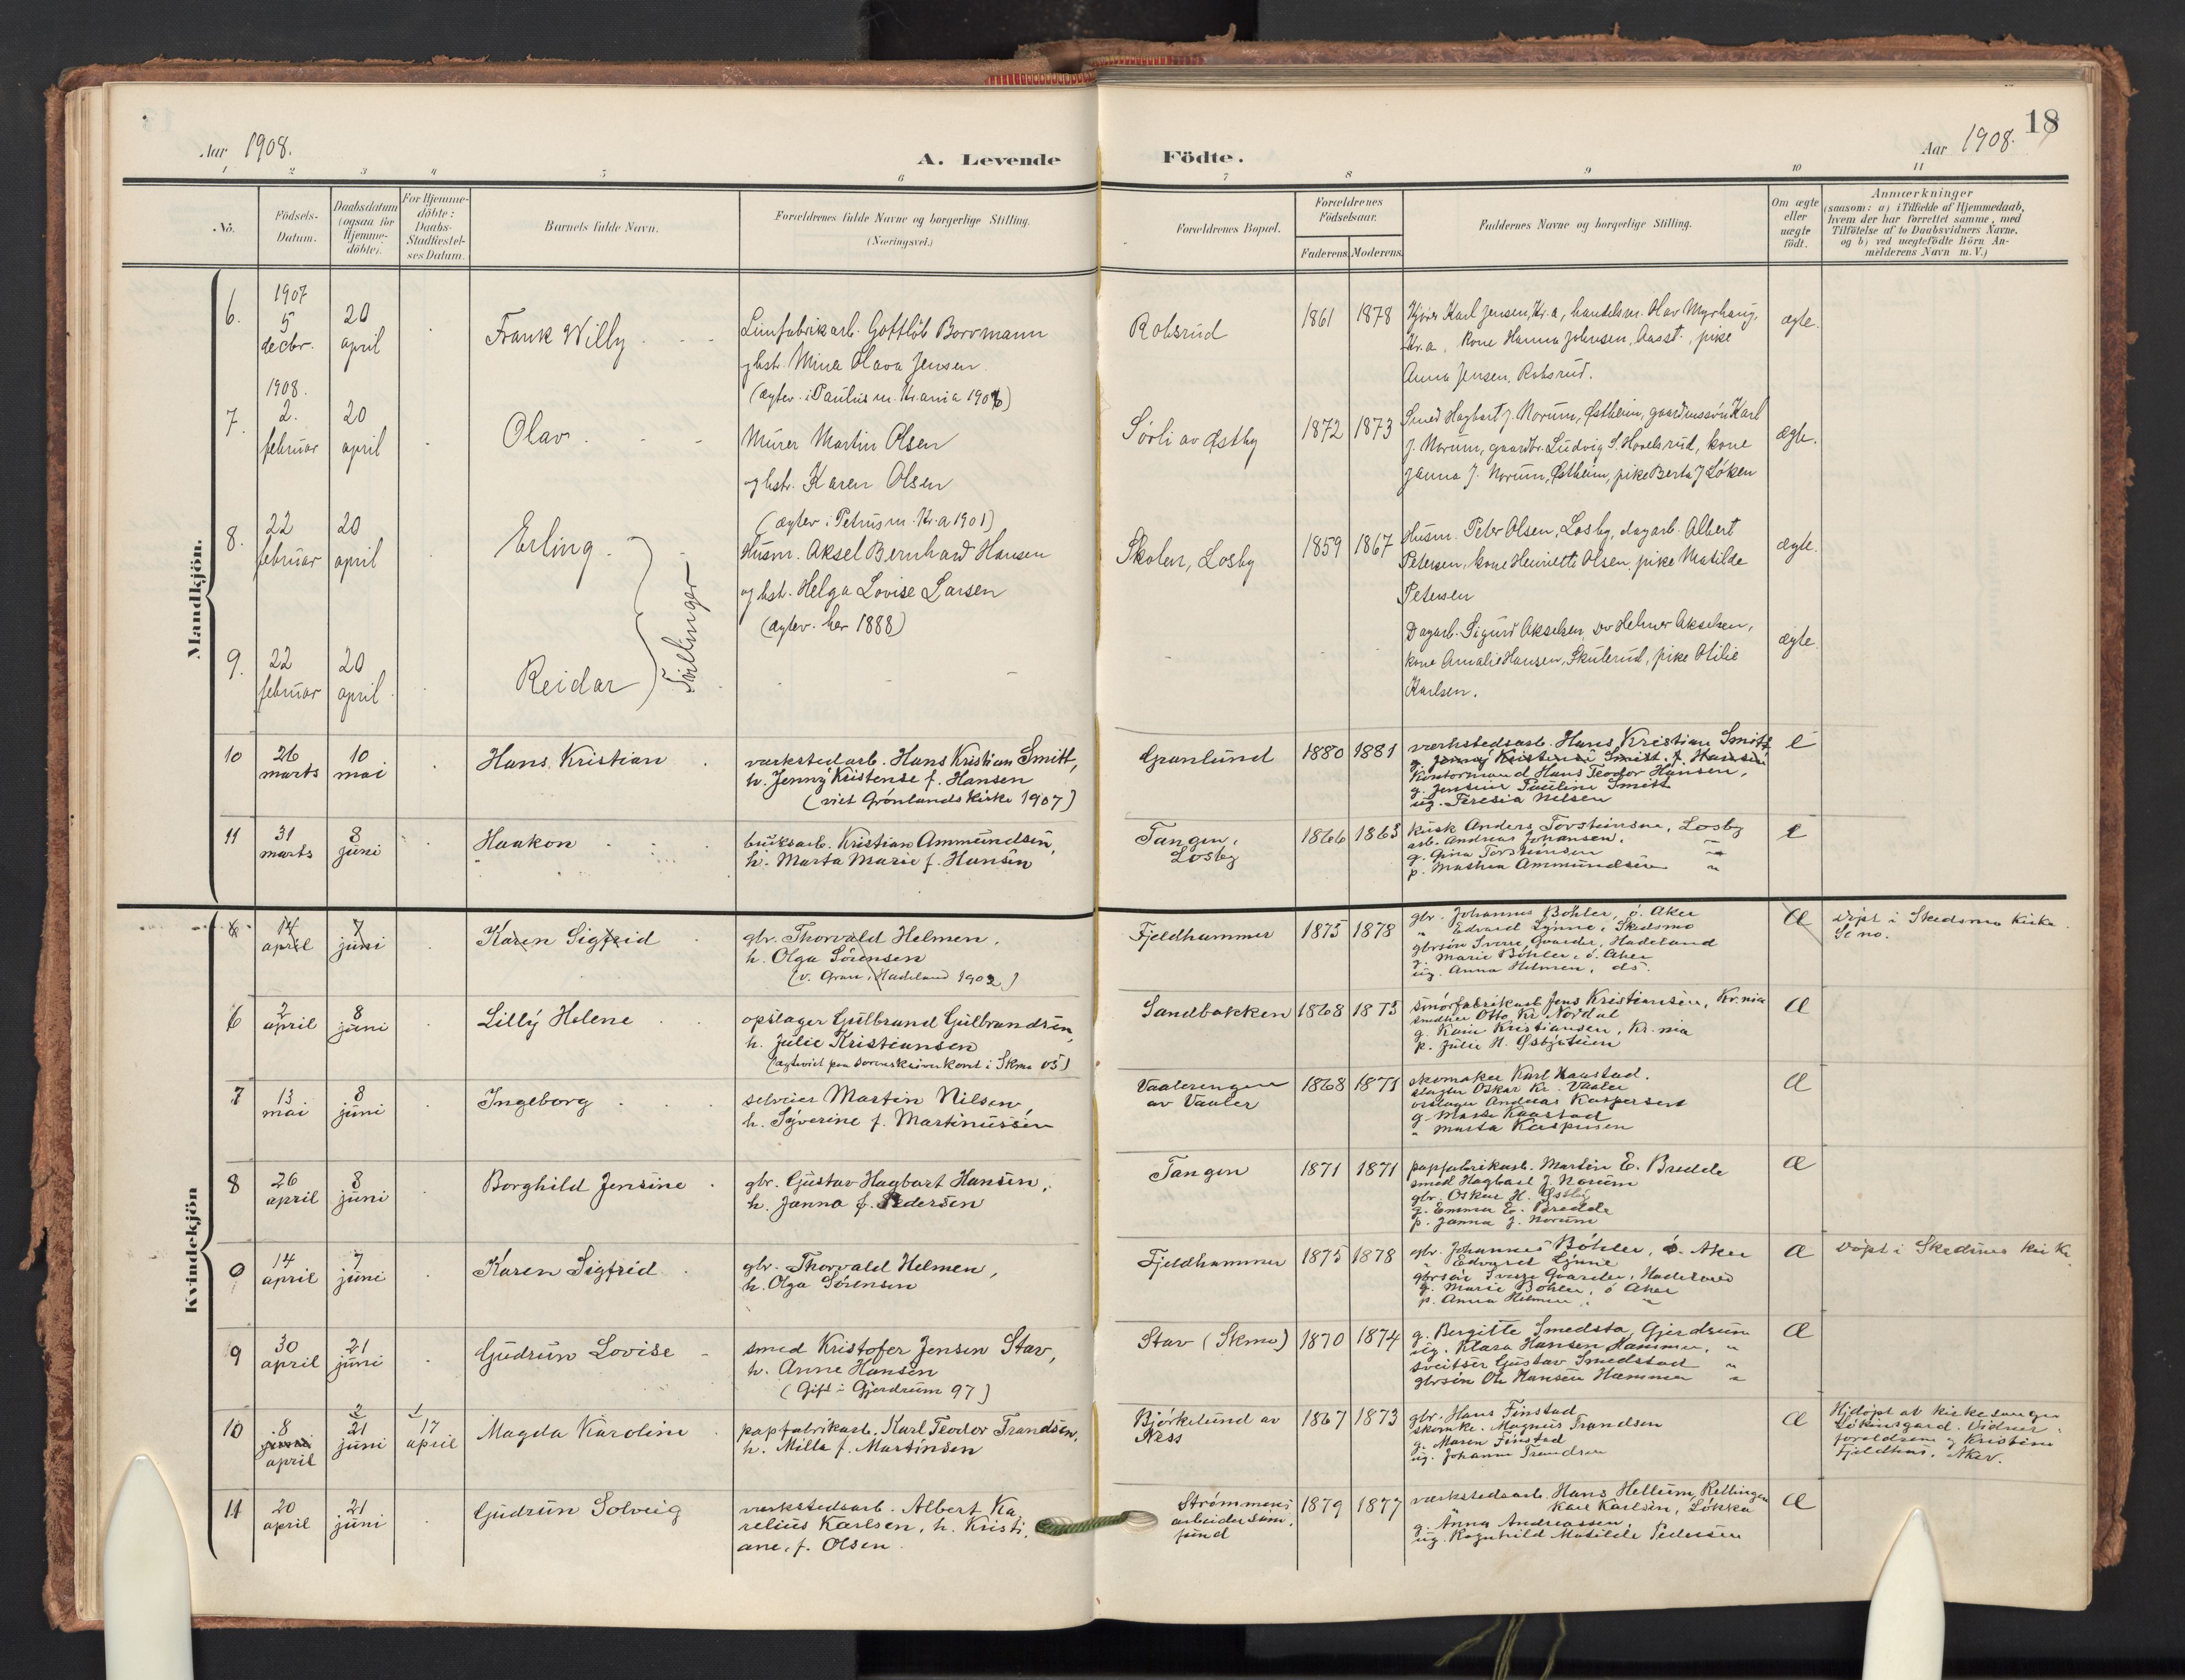 Aar 1908.
A. Levende
Födte.
Aar 1908.
18
1 2 3 4 5 6 7 8 9 10 11
No.
Födsels-
Datum.
Daabsdatum
(ogsaa for
Hjemme-
döbte).
For Hjemme-
döbte:
Daabs-
Stadfæstel-
ses Datum.
Barnets fulde Navn.
Forældrenes fulde Navne og borgerlige Stilling.
(Næringsvei.)
Forældrenes Bopæl.
Forældrenes
Födselsaar.
Faderens. Moderens.
Faddernes Navne og borgerlige Stilling.
Om ægte
eller
uægte
födt.
Anmærkninger
(saasom: a) i Tilfælde af Hjemmedaab,
hvem der har forrettet samme, med
Tilföielse af to Daabsvidners Navne,
og b) ved uægtefödte Börn An-
melderens Navn m.V.)
Mandkjön.
6.
1907
5
decbr.
20
april
Frank Willy
Limfabrikarb. Gottlob Borrmann
og hst. Mina Olava Jensen
(ægtev. i Paulus m. Kr.ania 1906)
Robsrud
1861 1878
Karl Jensen, Kr.a, handelsm. Olav Myrhaug,
Kr.a, kone Hanna Johnsen, Aast., pike
Anna Jensen, Robsrud.
ægte.
7.
1908.
2.
februar
20
april
Olav
Murer Martin Olsen
og hst. Karen Olsen
(ægtev. i Petrus m. Kr.a 1901)
Sörli av Østby
1872 1873
Smed Hagbart J. Norum, Østheim, gaardmssön Karl
J. Norum, gaardbr. Ludvig S. Hovelsrud, kone
Janna J. Norum, Østheim, pike Berta J Löken
ægte.
8.
22
februar
20
april
Erling
Tvillinger
Husm. Aksel Bernhard Hansen
og hst. Helga Lovise Larsen
(ægtev. her 1888)
Skolen, Losby
1859 1867
Husm. Peter Olsen, Losby, dagarb. Albert
Petersen, kone Henriette Olsen, pike Matilde
Petersen
ægte.
9.
22
februar
20
april
Reidar
Dagarb. Sigurd Akselsen, do Helmer Akselsen,
kone Amalie Hansen, Skulerud, pike Otilie
Karlsen.
ægte
10
26
marts
10
mai
Hans Kristian
værkstedarb. Hans Kristian Smitt,
h. Jenny Kristense f. Hansen
(viet Grönlands Kirke 1907)
Granlund
1880 1881
værkstedsarb. Hans Kristian Smitt
g. Jenny Kristense Smitt f. Hansen
Kontormand Hans Teodor Hansen,
g. Jensine Pauline Smitt
ug. Teresia Nilsen
e
11
31
marts
8
juni
Haakon
bruksarb. Kristian Ammundsen,
h. Marta Marie f. Hansen
Tangen,
Losby
1866 1863
kusk Anders Torsteinsen, Losby
arb. Andreas Johansen,
g. Gina Torsteinsen
p. Mathea Ammundsen "
e
Kvindekjön
6
14
april
7
juni
Karen Sigfrid
gbr. Thorvald Helmen,
h. Olga Sörensen
(v. Gran, Hadeland 1902)
Fjeldhammer
1875 1878
gbr. Johannes Böhler, ö. Aker
" Edvard Lynne, Skedsmo
gbrsön Sverre Gvarder, Hadeland
g. Marie Böhler, ö. Aker
ug. Anna Helmen, do.
Æ
Döpt i Skedsmo Kirke.
Se no.
6
2
april
8
juni
Lilly Helene
opslager Gulbrand Gulbrandsen,
h. Julie Kristiansen
(egteviet paa Sorenskriverkont i Skmo 05)
Sandbakken
1868 1875
smörfabrikarb Jens Kristiansen, Kr.nia
Otto Kr. Nordal
g. Karin Kristiansen, Kr.nia
p. Julie H. Østbystuen
Æ
7
13
mai
8
juni
Ingeborg
selveier Martin Nilsen,
h. Syverine f. Martinussen
Vaalerengen
av Vaaler
1868 1871
skomaker Karl Kaastad.
slagter Oskar Kr. Vaaler
Andreas Kaspersen
g. Kaastad
" Marta Kaspersen
Æ
8
26
april
8
juni
Borghild Jensine
gbr. Gustav Hagbart Hansen,
h. Janna f. Pedersen
Tangen
1871 1871
papfabrikarb. Martin E. Bredde
smed Hagbart J Norum
gbr. Oskar H. Østby
g. Emma E. Bredde
p. Janna J. Norum
Æ
9
14
april
7
juni
Karen Sigfrid
gbr. Thorvald Helmen,
h. Olga Sörensen
Fjeldhammer
1875 1878
gbr. Johannes Böhler, ö. Aker
" Edvard Lynne
gbrsön Sverre Gvarder, Hadeland
g. Marie Böhler, ö Aker
p. Anna Helmen, "
Æ
Döpt i Skedsmo Kirke
9
30
april
21
juni
Gudrun Lovise
smed Kristofer Jensen Stav,
h. Anne Hansen
(Gift i Gjerdrum 97)
Stav (Skmo)
1870 1874
g. Bergitte Smedsta, Gjerdrum
ug. Klara Hansen Hammer, "
sveitser Gustav Smedstad "
gbrsön Ole Hansen Hammer "
Æ
10
8
april
2
21
juni
1
17
april
Magda Karoline
papfabrikarb. Karl Teodor Trandsen,
h. Milla f. Martinsen
Björkelund av
Ness
1867 1873
gbr. Hans Finstad
skomkr. Magnus Trandsen
g. Maren Finstad
ug. Johanne Trandsen
Æ
Hjdöpt af kirkesanger
Lökensgard. Vidner:
foreldrene og Kristine
Fjeldhus, Aker.
11
20
april
21
juni
Gudrun Solveig
værkstedsarb. Albert Ka-
relius Karlsen, h. Kristi-
ane, f. Olsen
Strömmens
arbeidersam.
fund
1879 1877
værkstedsarb. Hans Hellum, Rellingen
" Karl Karlsen, Lökka
g. Anna Andreassen,
ug. Ragnhild Matilde Pedersen
Æ